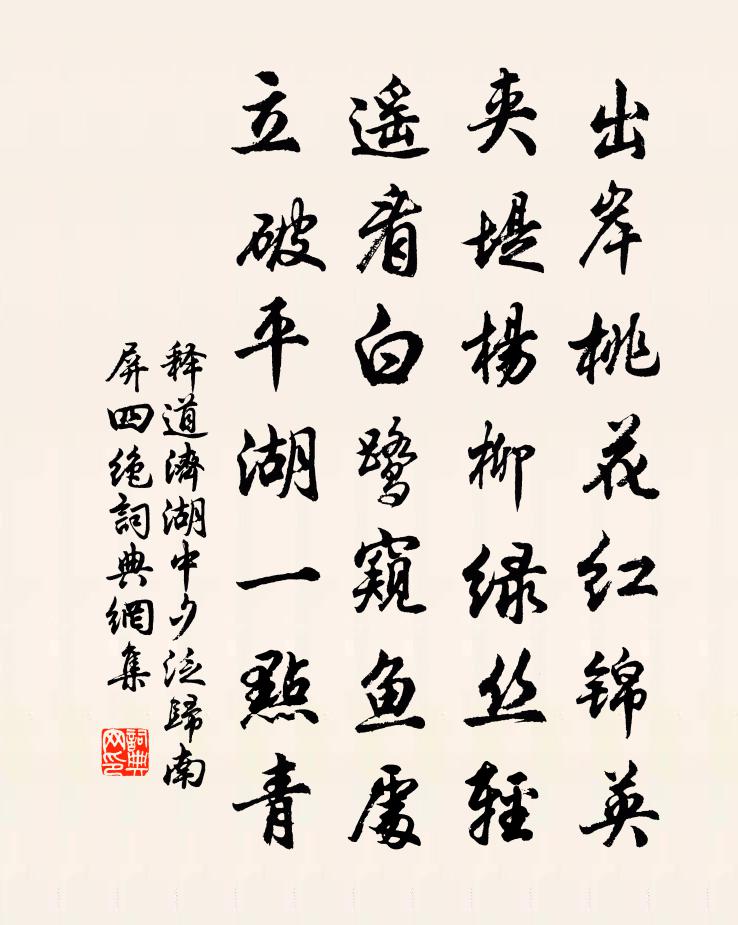 出岸桃花红锦英
夹堤楊柳绿丝轻
遥看白鹭窺鱼處
立破平湖一點青
释道濟湖中夕泛歸南
屏四绝詞典網集
詞典
网印